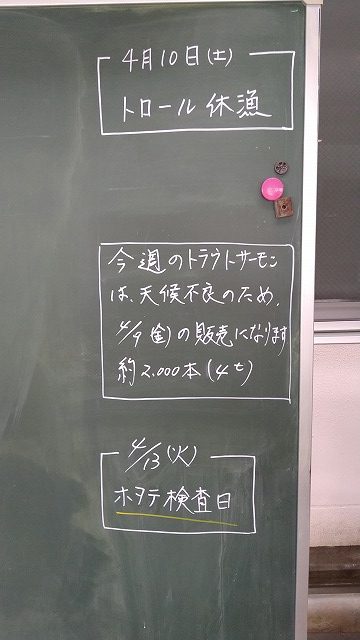 4月10日(土)
トロール休漁
今週のトラウトサーモン
は、天候不良のため、
4/9(金)の販売になります
約2.000本(4t)
4/13(火)
ホタテ検査日